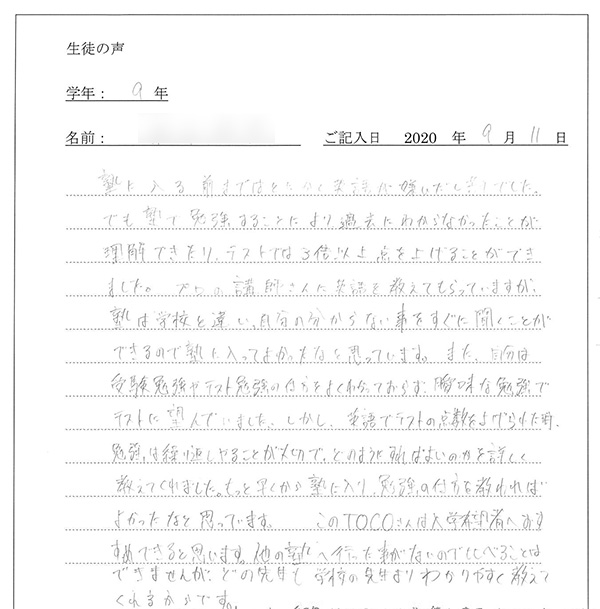 生徒の声
学年： 9 年
名前： ご記入日 2020 年 9 月 11 日
塾に入る前まではとにかく英語が嫌いだし苦手でした。
でも塾で勉強することにより過去にわからなかったことが
理解できたり、テストでは3倍以上点を上げることができ
ました。プロの講師さんに英語を教えてもらっていますが、
塾は学校と違い、自分の分からない事をすぐに聞くことが
できるので塾に入ってよかったなと思っています。また、自分は
受験勉強やテスト勉強の仕方をよくわかっておらず、曖昧な勉強で
テストに望んでいました。しかし、英語でテストの点数を上げられた時、
勉強は繰り返しやることが大切で、どのようにすればよいのかを詳しく
教えてくれました。もっと早くから塾に入り、勉強の仕方を教われば
よかったなと思っています。 このTOCOさんは入学希望者へおす
すめできると思います。他の塾へ行った事がないのでくらべることは
できませんが、どの先生も学校の先生よりわかりやすく教えて
くれるからです。